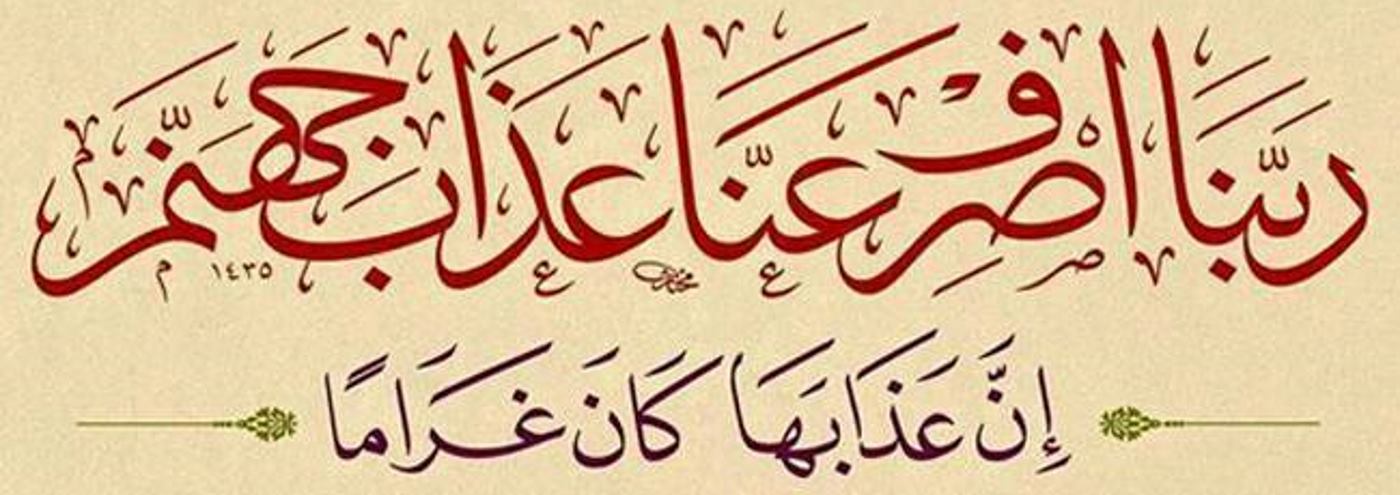 رَبَّنَا اصْرِفْ عَنَّا عَذَابَ جَهَنَّمَ
١٤٣٥
إِنَّ عَذَابَهَا كَانَ غَرَامًا